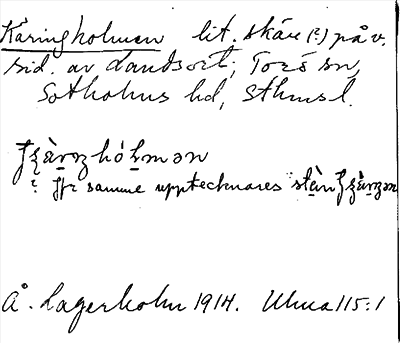 Käringholmen lit. skär (?) på v.
sid. av Landsort; Torö sn,
Sotholms hd, Sthmsl.
? jfr samme upptecknares
Å. Lagerholm 1914. Uluna 115:1